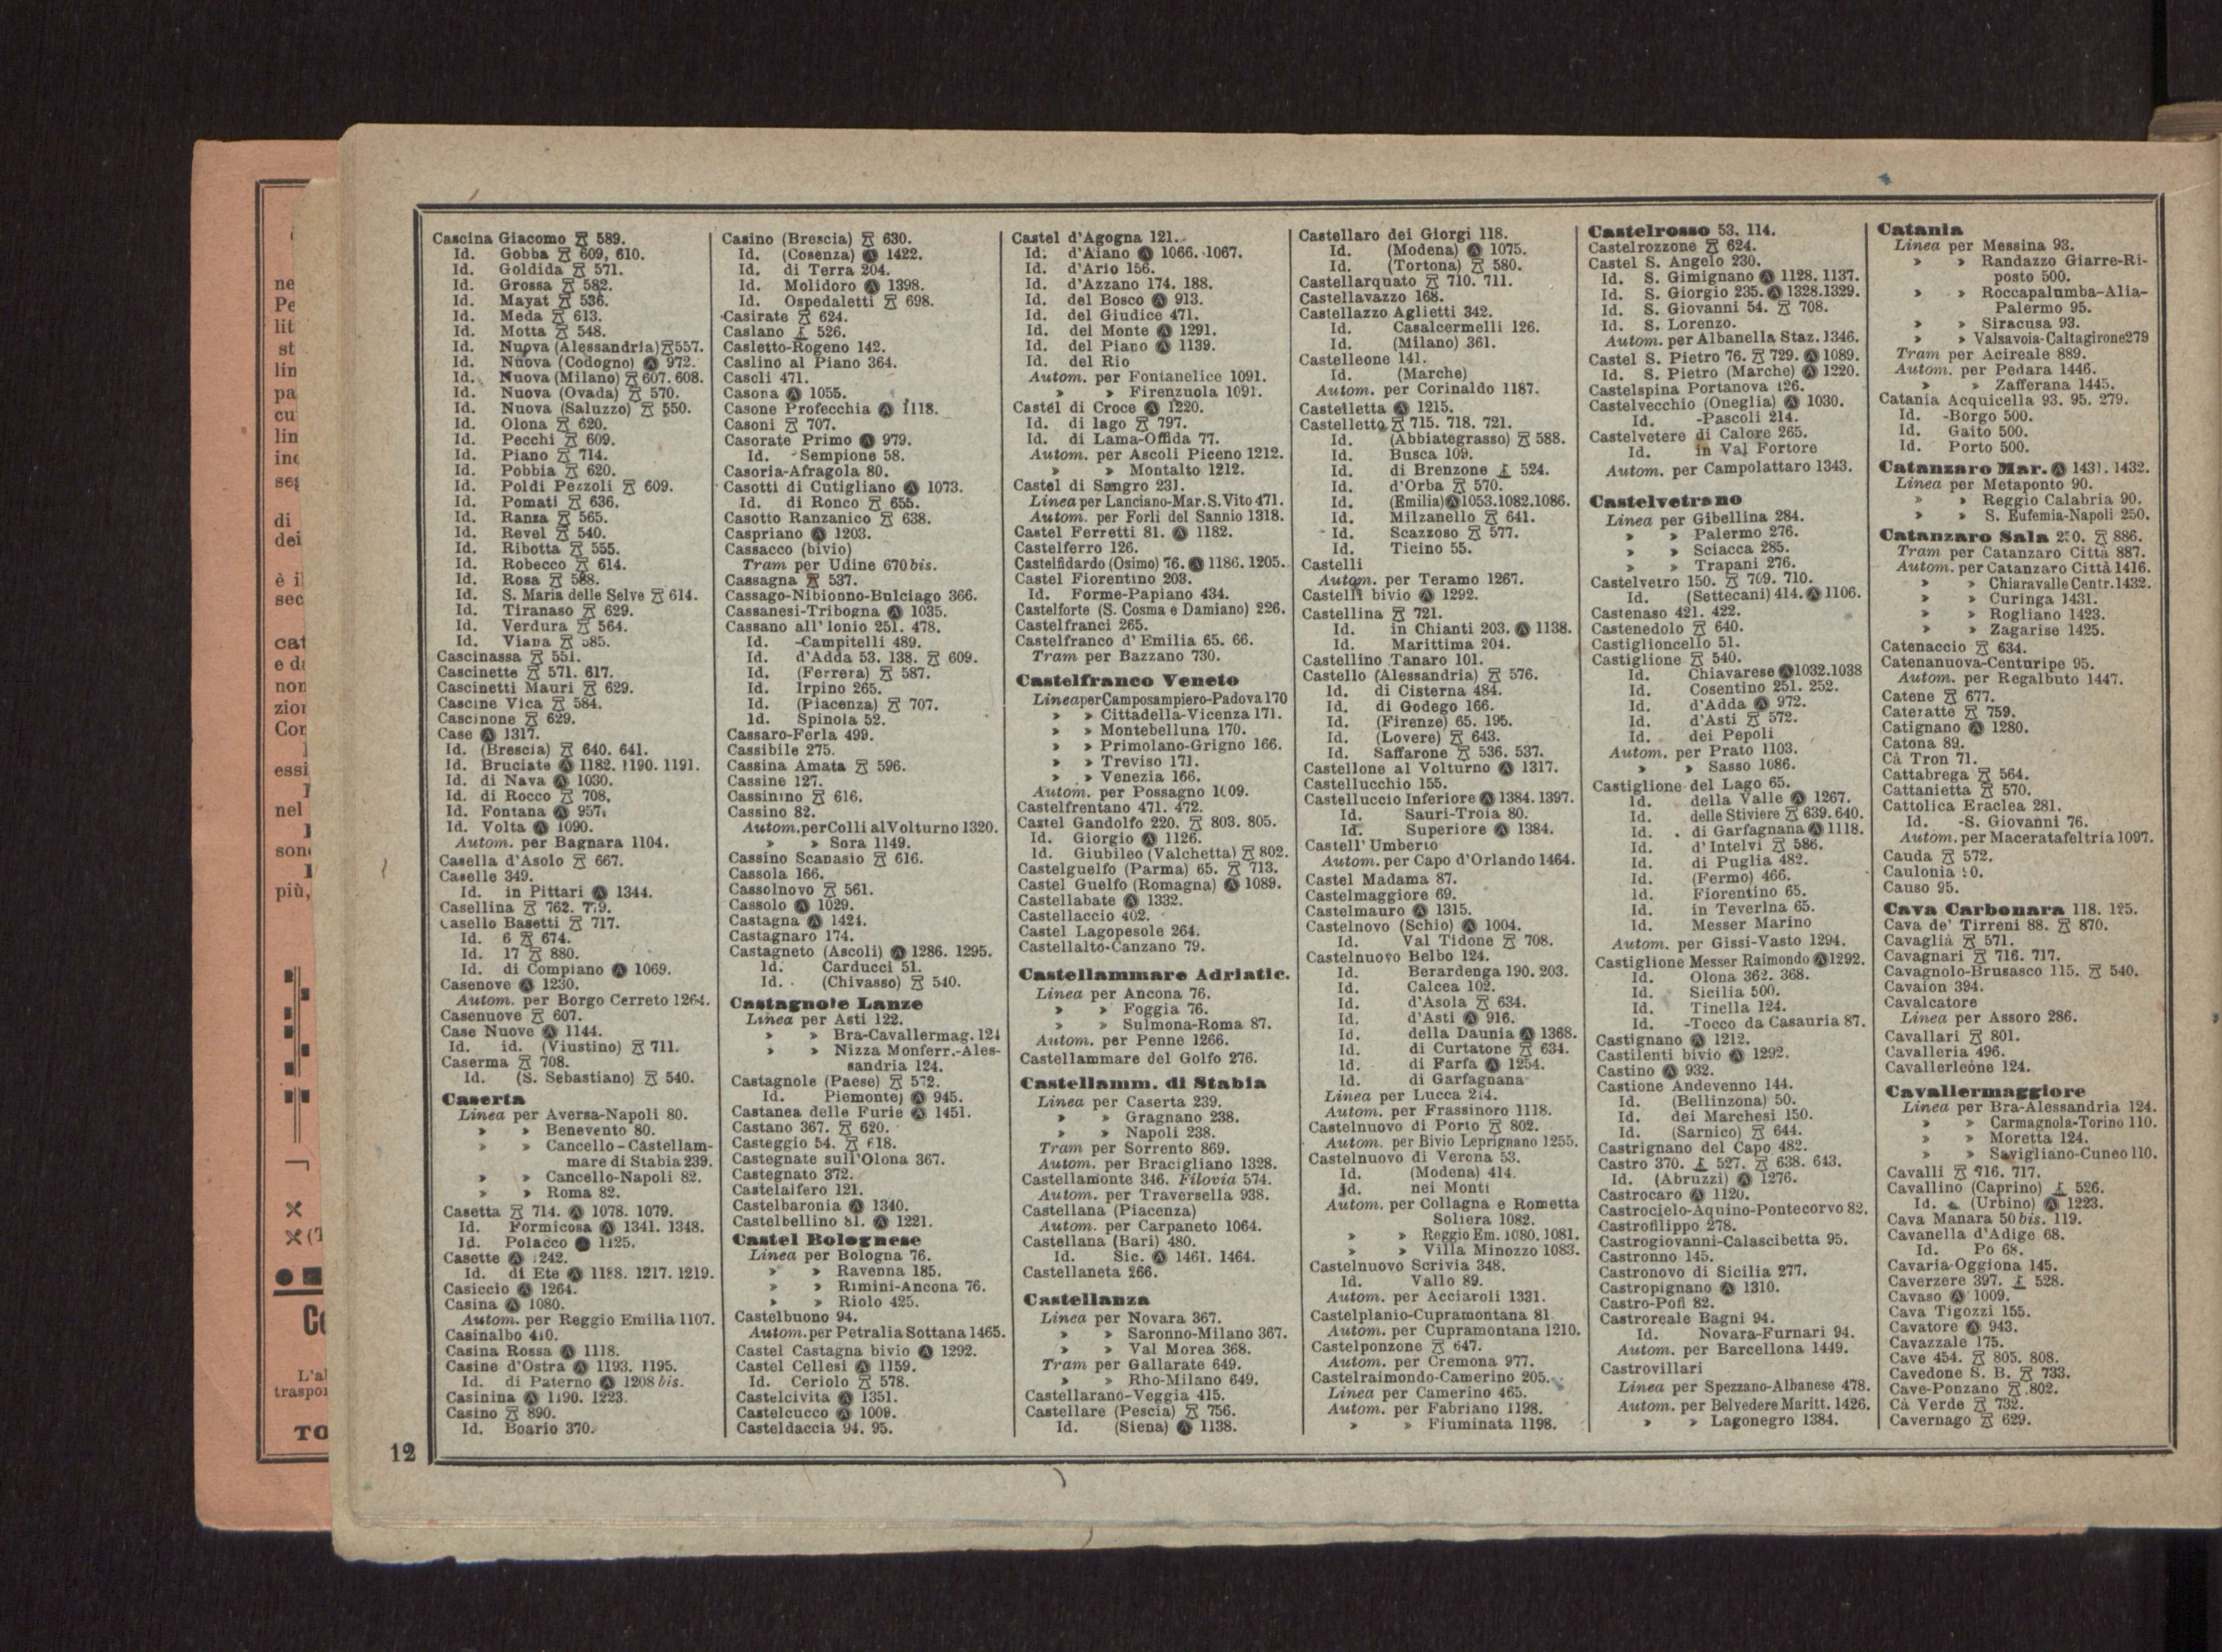 Cascina Giacomo 589.
Id. Gobba 609, 610.
Id. Goldida 571.
Id. Grossa 582.
Id. Mayat 536.
Id. Meda 613.
Id. Motta 548.
Id. Nuova (Alessandria) 557.
Id. Nuova (Codogno) Ⓐ 972.
Id. Nuova (Milano) 607. 608.
Id. Nuova (Ovada) 570.
Id. Nuova (Saluzzo) 550.
Id. Olona 620.
Id. Pecchi 609.
Id. Piano 714.
Id. Pobbia 620.
Id. Poldi Pezzoli 609.
Id. Pomati 636.
Id. Ranza 565.
Id. Revel 540.
Id. Ribotta 555.
Id. Robecco 614.
Id. Rosa 588.
Id. S. Maria delle Selve 614.
Id. Tiranaso 629.
Id. Verdura 564.
Id. Viana 585.
Cascinassa 551.
Cascinette 571. 617.
Cascinetti Mauri 629.
Cascine Vica 584.
Cascinone 629.
Case Ⓐ 1317.
Id. (Brescia) 640. 641.
Id. Bruciate Ⓐ 1182. 1190. 1191.
Id. di Nava Ⓐ 1030.
Id. di Rocco 708.
Id. Fontana Ⓐ 957.
Id. Volta Ⓐ 1090.
Autom. per Bagnara 1104.
Casella d'Asolo 667.
Caselle 349.
Id. in Pittari Ⓐ 1344.
Casellina 762. 779.
Casello Basetti 717.
Id. 6 674.
Id. 17 880.
Id. di Compiano Ⓐ 1069.
Casenove Ⓐ 1230.
Autom. per Borgo Cerreto 1264.
Casenuove 607.
Case Nuove Ⓐ 1144.
Id. id. (Viustino) 711.
Caserma 708.
Id. (S. Sebastiano) 540.
Caserta
Linea per Aversa-Napoli 80.
» » Benevento 80.
» » Cancello-Castellam-
mare di Stabia 239.
» » Cancello-Napoli 82.
» » Roma 82.
Casetta 714. Ⓐ 1078. 1079.
Id. Formicosa Ⓐ 1341. 1348.
Id. Polacco 1125.
Casette Ⓐ 1242.
Id. di Ete Ⓐ 1188. 1217. 1219.
Casiccio Ⓐ 1264.
Casina Ⓐ 1080.
Autom. per Reggio Emilia 1107.
Casinalbo 410.
Casina Rossa Ⓐ 1118.
Casine d'Ostra Ⓐ 1193. 1195.
Id. di Paterno Ⓐ 1208 bis.
Casinina Ⓐ 1190. 1223.
Casino 890.
Id. Boario 370.
Casino (Brescia) 630.
Id. (Cosenza) Ⓐ 1422.
Id. di Terra 204.
Id. Molidoro Ⓐ 1398.
Id. Ospedaletti 698.
Casirate 624.
Caslano 526.
Casletto-Rogeno 142.
Caslino al Piano 364.
Casoli 471.
Casona Ⓐ 1055.
Casone Profecchia Ⓐ 1118.
Casoni 707.
Casorate Primo Ⓐ 979.
Id. Sempione 58.
Casoria-Afragola 80.
Casotti di Cutigliano Ⓐ 1073.
Id. di Ronco 655.
Casotto Ranzanico 638.
Caspriano Ⓐ 1203.
Cassacco (bivio)
Tram per Udine 670 bis.
Cassagna 537.
Cassago-Nibionno-Bulciago 366.
Cassanesi-Tribogna Ⓐ 1035.
Cassano all'Ionio 251. 478.
Id. -Campitelli 489.
Id. d'Adda 53. 138. 609.
Id. (Ferrera) 587.
Id. Irpino 265.
Id. (Piacenza) 707.
Id. Spinola 52.
Cassaro-Ferla 499.
Cassibile 275.
Cassina Amata 596.
Cassine 127.
Cassinino 616.
Cassino 82.
Autom. per Colli al Volturno 1320.
» » Sora 1149.
Cassino Scanasio 616.
Cassola 166.
Cassolnovo 561.
Cassolo Ⓐ 1029.
Castagna Ⓐ 1424.
Castagnaro 174.
Castagneto (Ascoli) Ⓐ 1286. 1295.
Id. Carducci 51.
Id. (Chivasso) 540.
Castagnole Lanze
Linea per Asti 122.
» » Bra-Cavallermag. 124
» » Nizza Monferr.-Ales-
sandria 124.
Castagnole (Paese) 572.
Id. Piemonte) Ⓐ 945.
Castanea delle Furie Ⓐ 1451.
Castano 367. 620.
Casteggio 54. 618.
Castegnate sull'Olona 367.
Castegnato 372.
Castelalfero 121.
Castelbaronia Ⓐ 1340.
Castelbellino 81. Ⓐ 1221.
Castel Bolognese
Linea per Bologna 76.
» » Ravenna 185.
» » Rimini-Ancona 76.
» » Riolo 425.
Castelbuono 94.
Autom. per Petralia Sottana 1465.
Castel Castagna bivio Ⓐ 1292.
Castel Cellesi Ⓐ 1159.
Id. Ceriolo 578.
Castelcivita Ⓐ 1351.
Castelcucco Ⓐ 1009.
Casteldaccia 94. 95.
Castel d'Agogna 121.
Id. d'Aiano Ⓐ 1066. 1067.
Id. d'Ario 156.
Id. d'Azzano 174. 188.
Id. del Bosco Ⓐ 913.
Id. del Giudice 471.
Id. del Monte Ⓐ 1291.
Id. del Piano Ⓐ 1139.
Id. del Rio
Autom. per Fontanelice 1091.
» » Firenzuola 1091.
Castel di Croce Ⓐ 1220.
Id. di Iago 797.
Id. di Lama-Offida 77.
Autom. per Ascoli Piceno 1212.
» » Montalto 1212.
Castel di Sangro 231.
Linea per Lanciano-Mar. S. Vito 471.
Autom. per Forli del Sannio 1318.
Castel Ferretti 81. Ⓐ 1182.
Castelferro 126.
Castelfidardo (Osimo) 76. Ⓐ 1186. 1205.
Castel Fiorentino 203.
Id. Forme-Papiano 434.
Castelforte (S. Cosma e Damiano) 226.
Castelfranci 265.
Castelfranco d'Emilia 65. 66.
Tram per Bazzano 730.
Castelfranco Veneto
Linea per Camposampiero-Padova 170
» » Cittadella-Vicenza 171.
» » Montebelluna 170.
» » Primolano-Grigno 166.
» » Treviso 171.
» » Venezia 166.
Autom. per Possagno 1009.
Castelfrentano 471. 472.
Castel Gandolfo 220. 803. 805.
Id. Giorgio Ⓐ 1126.
Id. Giubileo (Valchetta) 802.
Castelguelfo (Parma) 65. 713.
Castel Guelfo (Romagna) Ⓐ 1089.
Castellabate Ⓐ 1332.
Castellaccio 402.
Castel Lagopesole 264.
Castellalto-Canzano 79.
Castellammare Adriatic.
Linea per Ancona 76.
» » Foggia 76.
» » Sulmona-Roma 87.
Autom. per Penne 1266.
Castellammare del Golfo 276.
Castellamm. di Stabia
Linea per Caserta 239.
» » Gragnano 238.
» » Napoli 238.
Tram per Sorrento 869.
Autom. per Bracigliano 1328.
Castellamonte 346. Filovia 574.
Autom. per Traversella 938.
Castellana (Piacenza)
Autom. per Carpaneto 1064.
Castellana (Bari) 480.
Id. Sic. Ⓐ 1461. 1464.
Castellaneta 266.
Castellanza
Linea per Novara 367.
» » Saronno-Milano 367.
» » Val Morea 368.
Tram per Gallarate 649.
» » Rho-Milano 649.
Castellarano-Veggia 415.
Castellare (Pescia) 756.
Id. (Siena) Ⓐ 1138.
Castellaro dei Giorgi 118.
Id. (Modena) Ⓐ 1075.
Id. (Tortona) 580.
Castellarquato 710. 711.
Castellavazzo 168.
Castellazzo Aglietti 342.
Id. Casalcermelli 126.
Id. (Milano) 361.
Castelleone 141.
Id. (Marche)
Autom. per Corinaldo 1187.
Castelletta Ⓐ 1215.
Castelletto 715. 718. 721.
Id. (Abbiategrasso) 588.
Id. Busca 109.
Id. di Brenzone 524.
Id. d'Orba 570.
Id. (Emilia) Ⓐ 1053. 1082. 1086.
Id. Milzanello 641.
Id. Scazzoso 577.
Id. Ticino 55.
Castelli
Autom. per Teramo 1267.
Castelli bivio Ⓐ 1292.
Castellina 721.
Id. in Chianti 203. Ⓐ 1138.
Id. Marittima 204.
Castellino Tanaro 101.
Castello (Alessandria) 576.
Id. di Cisterna 484.
Id. di Godego 166.
Id. (Firenze) 65. 195.
Id. (Lovere) 643.
Id. Saffarone 536. 537.
Castellone al Volturno Ⓐ 1317.
Castellucchio 155.
Castelluccio Inferiore Ⓐ 1384. 1397.
Id. Sauri-Troia 80.
Id. Superiore Ⓐ 1384.
Castell' Umberto
Autom. per Capo d'Orlando 1464.
Castel Madama 87.
Castelmaggiore 69.
Castelmauro Ⓐ 1315.
Castelnovo (Schio) Ⓐ 1004.
Id. Val Tidone 708.
Castelnuovo Belbo 124.
Id. Berardenga 190. 203.
Id. Calcea 102.
Id. d'Asola 634.
Id. d'Asti Ⓐ 916.
Id. della Daunia Ⓐ 1368.
Id. di Curtatone 634.
Id. di Farfa Ⓐ 1254.
Id. di Garfagnana
Linea per Lucca 214.
Autom. per Frassinoro 1118.
Castelnuovo di Porto 802.
Autom. per Bivio Leprignano 1255.
Castelnuovo di Verona 53.
Id. (Modena) 414.
Id. nei Monti
Autom. per Collagna e Rometta
Soliera 1082.
» » Reggio Em. 1080. 1081.
» » Villa Minozzo 1083.
Castelnuovo Scrivia 348.
Id. Vallo 89.
Autom. per Acciaroli 1331.
Castelplanio-Cupramontana 81.
Autom. per Cupramontana 1210.
Castelponzone 647.
Autom. per Cremona 977.
Castelraimondo-Camerino 205.
Linea per Camerino 465.
Autom. per Fabriano 1198.
» » Fiuminata 1198.
Castelrosso 53. 114.
Castelrozzone 624.
Castel S. Angelo 230.
Id. S. Gimignano Ⓐ 1128. 1137.
Id. S. Giorgio 235. Ⓐ 1328. 1329.
Id. S. Giovanni 54. 708.
Id. S. Lorenzo.
Autom. per Albanella Staz. 1346.
Castel S. Pietro 76. 729. Ⓐ 1089.
Id. S. Pietro (Marche) Ⓐ 1220.
Castelspina Portanova 126.
Castelvecchio (Oneglia) Ⓐ 1030.
Id. -Pascoli 214.
Castelvetere di Calore 265.
Id. in Val Fortore
Autom. per Campolattaro 1343.
Castelvetrano
Linea per Gibellina 284.
» » Palermo 276.
» » Sciacca 285.
» » Trapani 276.
Castelvetro 150. 709. 710.
Id. (Settecani) 414. Ⓐ 1106.
Castenaso 421. 422.
Castenedolo 640.
Castiglioncello 51.
Castiglione 540.
Id. Chiavarese Ⓐ 1032. 1038
Id. Cosentino 251. 252.
Id. d'Adda Ⓐ 972.
Id. d'Asti 572.
Id. dei Pepoli
Autom. per Prato 1103.
» » Sasso 1086.
Castiglione del Lago 65.
Id. della Valle Ⓐ 1267.
Id. delle Stiviere 639. 640.
Id. di Garfagnana Ⓐ 1118.
Id. d'Intelvi 586.
Id. di Puglia 482.
Id. (Fermo) 466.
Id. Fiorentino 65.
Id. in Teverina 65.
Id. Messer Marino
Autom. per Gissi-Vasto 1294.
Castiglione Messer Raimondo Ⓐ 1292.
Id. Olona 362. 368.
Id. Sicilia 500.
Id. Tinella 124.
Id. -Tocco da Casauria 87.
Castignano Ⓐ 1212.
Castilenti bivio Ⓐ 1292.
Castino Ⓐ 932.
Castione Andevenno 144.
Id. (Bellinzona) 50.
Id. dei Marchesi 150.
Id. (Sarnico) 644.
Castrignano del Capo 482.
Castro 370. 527. 638. 643.
Id. (Abruzzi) Ⓐ 1276.
Castrocaro Ⓐ 1120.
Castrocielo-Aquino-Pontecorvo 82.
Castrofilippo 278.
Castrogiovanni-Calascibetta 95.
Castronno 145.
Castronovo di Sicilia 277.
Castropignano Ⓐ 1310.
Castro-Pofi 82.
Castroreale Bagni 94.
Id. Novara-Furnari 94.
Autom. per Barcellona 1449.
Castrovillari
Linea per Spezzano-Albanese 478.
Autom. per Belvedere Maritt. 1426.
» » Lagonegro 1384.
Catania
Linea per Messina 93.
» » Randazzo Giarre-Ri-
posto 500.
» » Roccapalumba-Alia-
Palermo 95.
» » Siracusa 93.
» » Valsavoia-Caltagirone 279
Tram per Acireale 889.
Autom. per Pedara 1446.
» » Zafferana 1445.
Catania Acquicella 93. 95. 279.
Id. -Borgo 500.
Id. Gaito 500.
Id. Porto 500.
Catanzaro Mar. Ⓐ 1431. 1432.
Linea per Metaponto 90.
» » Reggio Calabria 90.
» » S. Eufemia-Napoli 250.
Catanzaro Sala 250. 886.
Tram per Catanzaro Città 887.
Autom. per Catanzaro Città 1416.
» » Chiaravalle Centr. 1432.
» » Curinga 1431.
» » Rogliano 1423.
» » Zagarise 1425.
Catenaccio 634.
Catenanuova-Centuripe 95.
Autom. per Regalbuto 1447.
Catene 677.
Cateratte 759.
Catignano Ⓐ 1280.
Catona 89.
Cà Tron 71.
Cattabrega 564.
Cattanietta 570.
Cattolica Eraclea 281.
Id. -S. Giovanni 76.
Autom. per Maceratafeltria 1097.
Cauda 572.
Caulonia 90.
Causo 95.
Cava Carbonara 118. 125.
Cava de' Tirreni 88. 870.
Cavaglià 571.
Cavagnari 716. 717.
Cavagnolo-Brusasco 115. 540.
Cavaion 394.
Cavalcatore
Linea per Assoro 286.
Cavallari 801.
Cavalleria 496.
Cavallerleone 124.
Cavallermaggiore
Linea per Bra-Alessandria 124.
» » Carmagnola-Torino 110.
» » Moretta 124.
» » Savigliano-Cuneo 110.
Cavalli 716. 717.
Cavallino (Caprino) 526.
Id. (Urbino) Ⓐ 1223.
Cava Manara 50 bis. 119.
Cavanella d'Adige 68.
Id. Po 68.
Cavaria-Oggiona 145.
Caverzere 397. 528.
Cavaso Ⓐ 1009.
Cava Tigozzi 155.
Cavatore Ⓐ 943.
Cavazzale 175.
Cave 454. 805. 808.
Cavedone S. B. 733.
Cave-Ponzano 802.
Cà Verde 732.
Cavernago 629.
12